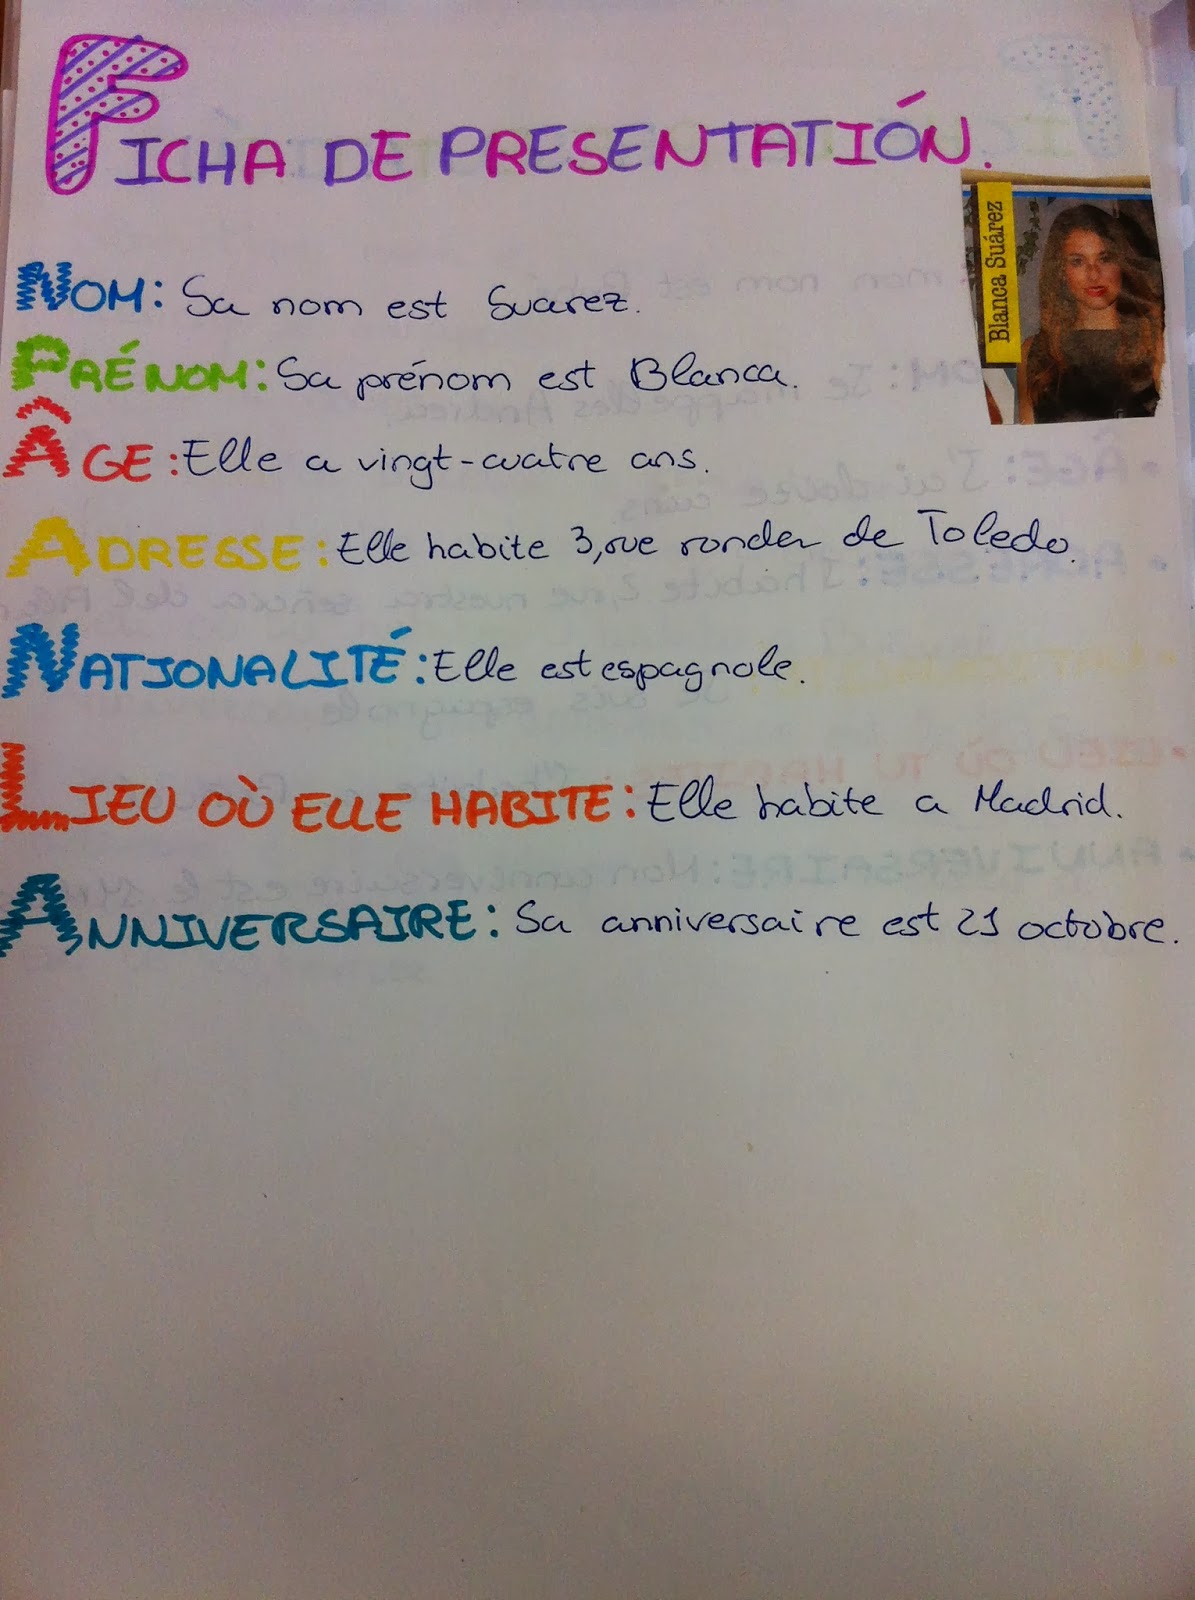 FICHA DE PRESENTATIÓN.
Blanca Suárez
NOM: Sa nom est Suarez.
PRÉNOM: Sa prénom est Blanca.
ÂGE: Elle a vingt-cuatre ans.
ADRESSE: Elle habite 3, rue ronder de Toledo.
NATIONALITÉ: Elle est espagnole.
LIEU OÙ ELLE HABITE: Elle habite a Madrid.
ANNIVERSAIRE: Sa anniversaire est 21 octobre.